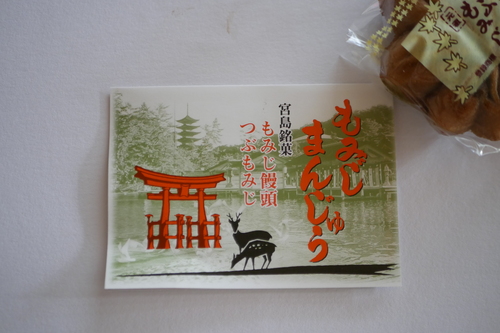 もみじ
まんじゅう
宮島銘菓
もみじ饅頭
つぶもみじ
もみじ